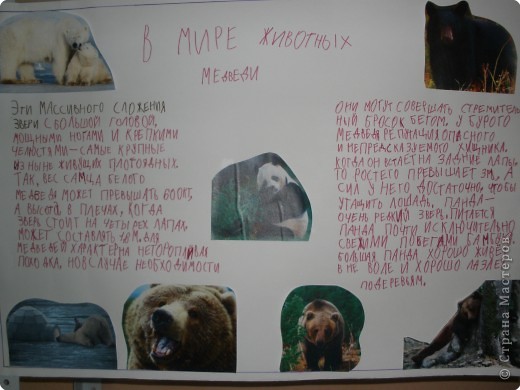 В МИРЕ ЖИВОТНЫХ
МЕДВЕДИ
ЭТИ МАССИВНОГО СЛОЖЕНИЯ
ЗВЕРИ С БОЛЬШОЙ ГОЛОВОЙ,
МОЩНЫМИ НОГАМИ И КРЕПКИМИ
ЧЕЛЮСТЯМИ – САМЫЕ КРУПНЫЕ
ИЗ НЫНЕ ЖИВУЩИХ ПЛОТОЯДНЫХ.
ТАК, ВЕС САМЦА БЕЛОГО
МЕДВЕДЯ МОЖЕТ ПРЕВЫШАТЬ 800 КГ,
А ВЫСОТА В ПЛЕЧАХ, КОГДА
ЗВЕРЬ СТОИТ НА ЧЕТЫРЕХ ЛАПАХ,
МОЖЕТ СОСТАВЛЯТЬ ДЛЯ
МЕДВЕДЕЙ ХАРАКТЕРНА НЕТОРОПЛИВАЯ
ПОХОДКА, НО В СЛУЧАЕ НЕОБХОДИМОСТИ
ОНИ МОГУТ СОВЕРШАТЬ СТРЕМИТЕЛЬ
НЫЙ БРОСОК БЕГОМ. У БУРОГО
МЕДВЕДЯ РЕПУТАЦИЯ ОПАСНОГО
И НЕПРЕДСКАЗУЕМОГО ХИЩНИКА.
КОГДА ОН ВСТАЁТ НА ЗАДНИЕ ЛАПЫ,
ТО РОСТ ЕГО ПРЕВЫШАЕТ 3М. А
СИЛ У НЕГО ДОСТАТОЧНО, ЧТОБЫ
УТАЩИТЬ ЛОШАДЬ. ПАНДА –
ОЧЕНЬ РЕДКИЙ ЗВЕРЬ. ПИТАЕТСЯ
ПАНДА ПОЧТИ ИСКЛЮЧИТЕЛЬНО
СВЕЖИМИ ПОБЕГАМИ БАМБУКА.
БОЛЬШАЯ ПАНДА ХОРОШО ЖИВЕТ
В НЕ ВОЛЕ И ХОРОШО ЛАЗАЕТ
ПО ДЕРЕВЬЯМ.
© Страна Мастеров